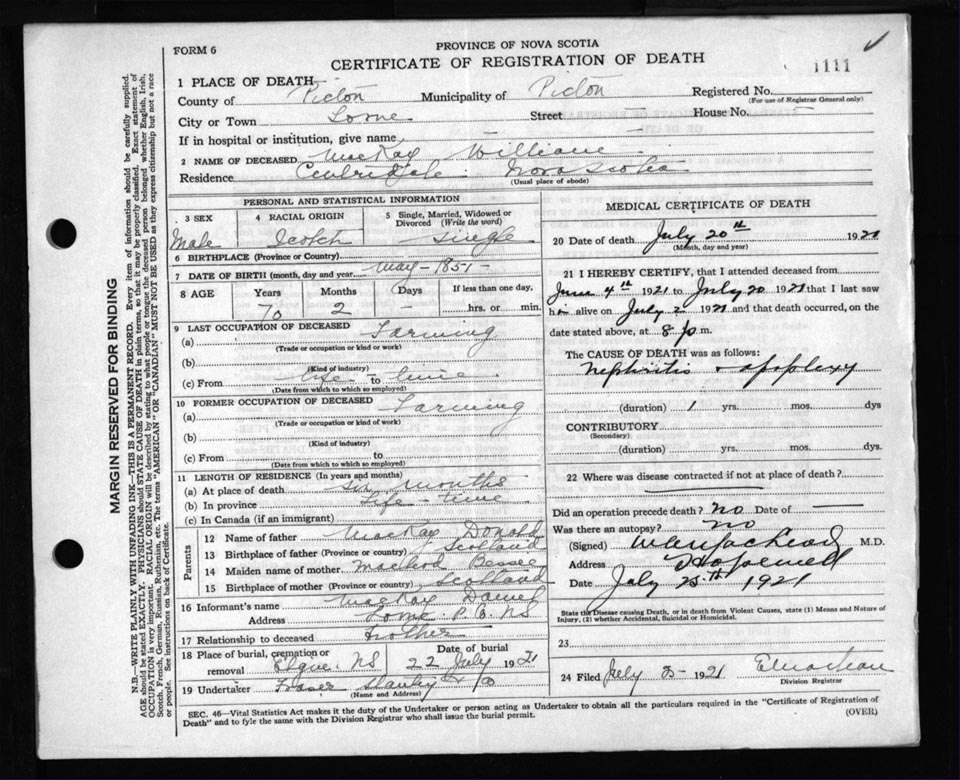 MARGIN RESERVED FOR BINDING
N.B.—WRITE PLAINLY WITH UNFADING INK—THIS IS A PERMANENT RECORD. Every item of information should be carefully supplied.
AGE should be stated EXACTLY. PHYSICIANS should STATE CAUSE OF DEATH in plain terms, so that it may be properly classified. Exact statement of
OCCUPATION is very important. RACIAL ORIGIN will be described by stating to what people or tongue the deceased person belonged whether English, Irish,
Scotch, French, German, Russian, Ruthenian, etc. The terms "AMERICAN" OR "CANADIAN" MUST NOT BE USED as they express citizenship but not a race
or people. See instructions on back of Certificate.
FORM 6
PROVINCE OF NOVA SCOTIA
CERTIFICATE OF REGISTRATION OF DEATH
1111
1 PLACE OF DEATH
County of Pictou Municipality of Pictou Registered No.
(For use of Registrar General only)
City or Town Lorne Street — House No. —
If in hospital or institution, give name —
2 NAME OF DECEASED MacKay William
Residence Centredale. Nova Scotia
(Usual place of abode)
PERSONAL AND STATISTICAL INFORMATION
3 SEX Male
4 RACIAL ORIGIN Scotch
5 Single, Married, Widowed or Divorced (Write the word) Single
6 BIRTHPLACE (Province or Country)
7 DATE OF BIRTH (month, day and year) May - 1851 -
8 AGE Years Months Days If less than one day,
70 2 hrs. or min.
9 LAST OCCUPATION OF DECEASED
(a) Farming
(Trade or occupation or kind or work)
(b)
(Kind of industry)
(c) From Life - to time
(Date from which to which so employed)
10 FORMER OCCUPATION OF DECEASED
(a) Farming
(Trade or occupation or kind of work)
(b)
(Kind of industry)
(c) From to
(Date from which to which so employed)
11 LENGTH OF RESIDENCE (In years and months)
(a) At place of death six months
(b) In province Life - time
(c) In Canada (if an immigrant)
Parents
12 Name of father MacKay Donald
13 Birthplace of father (Province or country) Scotland
14 Maiden name of mother MacLeod Bessie
15 Birthplace of mother (Province or country) Scotland
16 Informant's name MacKay Daniel
Address Lorne P.C. NS
17 Relationship to deceased brother
18 Place of burial, cremation or removal Elgin NS
Date of burial 22 July 1921
19 Undertaker Fraser Stanley & Co
(Name and Address)
MEDICAL CERTIFICATE OF DEATH
20 Date of death July 20th 1921
(Month, day and year)
21 I HEREBY CERTIFY, that I attended deceased from
June 4th 1921 to July 20 1921 that I last saw
him alive on July 2 1921 and that death occurred, on the
date stated above, at 8 p m.
The CAUSE OF DEATH was as follows:
Nephritis & apoplexy
(duration) 1 yrs. mos. dys
CONTRIBUTORY
(Secondary)
(duration) yrs. mos. dys.
22 Where was disease contracted if not at place of death?
Did an operation precede death? No Date of —
Was there an autopsy? no
(Signed) M.D.
Address Hopewell
Date July 25th 1921
State the Disease causing Death, or in death from Violent Causes, state (1) Means and Nature of
Injury, (2) whether Accidental, Suicidal or Homicidal.
23
24 Filed July 25 - 1921
Division Registrar
SEC. 46—Vital Statistics Act makes it the duty of the Undertaker or person acting as Undertaker to obtain all the particulars required in the "Certificate of Registration of
Death" and to fyle the same with the Division Registrar who shall issue the burial permit. (OVER)